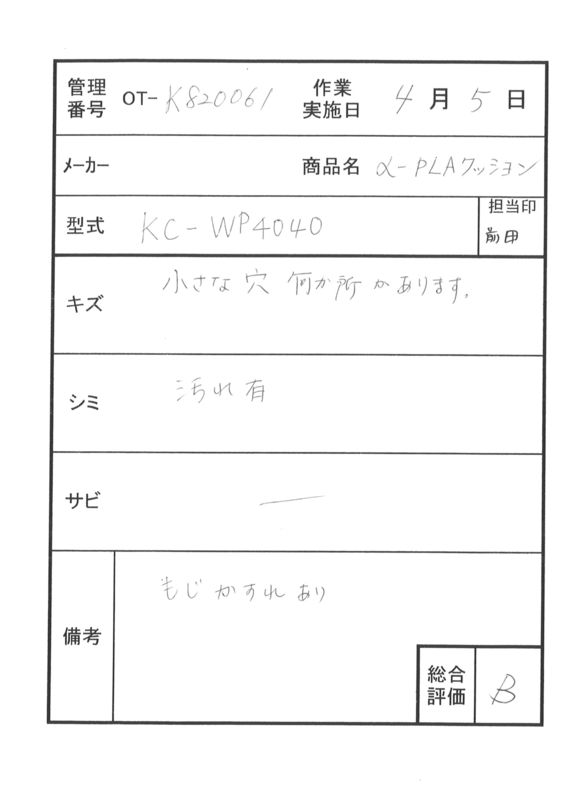 管理番号 OT-K820061 作業実施日 4月5日
メーカー 商品名 α-PLAクッション
型式 KC-WP4040 担当印 前田
キズ 小さな穴 何か所かあります。
シミ 汚れ有
サビ —
備考 もじかすれあり
総合評価 B